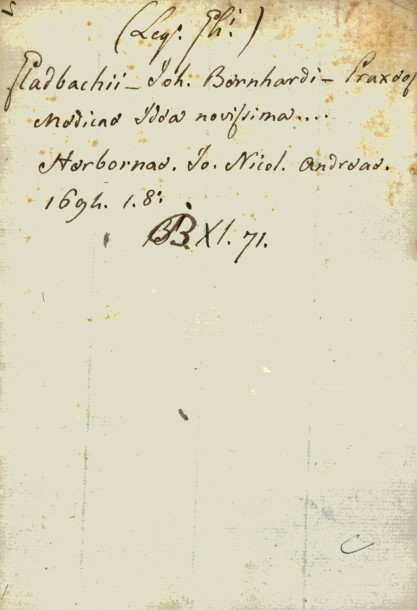 (Legs. Phi.)
Gladbachii - Joh. Bernhardi - Praxeos
Medicae Idea novissima....
Herbornae. Jo. Nicol. Andreae.
1694. 1. 8:
BB. XI. 71.